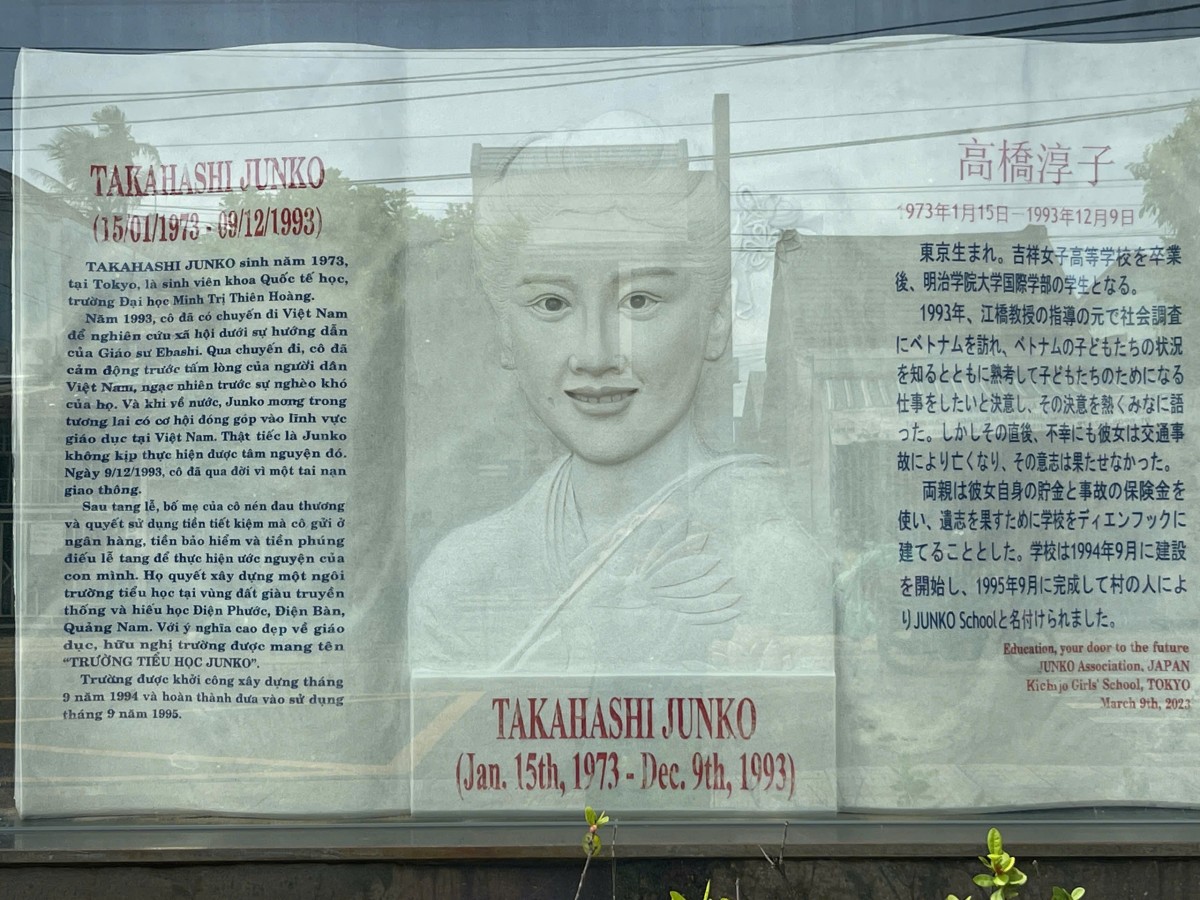 TAKAHASHI JUNKO
(15/01/1973 - 09/12/1993)
TAKAHASHI JUNKO sinh năm 1973,
tại Tokyo, là sinh viên khoa Quốc tế học,
trường Đại học Minh Trị Thiên Hoàng.
Năm 1993, cô đã có chuyến đi Việt Nam
để nghiên cứu xã hội dưới sự hướng dẫn
của Giáo sư Ebashi. Qua chuyến đi, cô đã
cảm động trước tấm lòng của người dân
Việt Nam, ngạc nhiên trước sự nghèo khó
của họ. Và khi về nước, Junko mong trong
tương lai có cơ hội đóng góp vào lĩnh vực
giáo dục tại Việt Nam. Thật tiếc là Junko
không kịp thực hiện được tâm nguyện đó.
Ngày 9/12/1993, cô đã qua đời vì một tai nạn
giao thông.
Sau tang lễ, bố mẹ của cô nén đau thương
và quyết sử dụng tiền tiết kiệm mà cô gửi ở
ngân hàng, tiền bảo hiểm và tiền phúng
điếu lễ tang để thực hiện ước nguyện của
con mình. Họ quyết xây dựng một ngôi
trường tiểu học tại vùng đất giàu truyền
thống và hiếu học Điện Phước, Điện Bàn,
Quảng Nam. Với ý nghĩa cao đẹp về giáo
dục, hữu nghị trường được mang tên
“TRƯỜNG TIỂU HỌC JUNKO”.
Trường được khởi công xây dựng tháng
9 năm 1994 và hoàn thành đưa vào sử dụng
tháng 9 năm 1995.
TAKAHASHI JUNKO
(Jan. 15th, 1973 - Dec. 9th, 1993)
高橋淳子
1973年1月15日－1993年12月9日
東京生まれ。吉祥女子高等学校を卒業
後、明治学院大学国際学部の学生となる。
1993年、江橋教授の指導の元で社会調査
にベトナムを訪れ、ベトナムの子どもたちの状況
を知るとともに熟考して子どもたちのためになる
仕事をしたいと決意し、その決意を熱くみなに語
った。しかしその直後、不幸にも彼女は交通事
故により亡くなり、その意志は果たせなかった。
両親は彼女自身の貯金と事故の保険金を
使い、遺志を果すために学校をディエンフックに
建てることとした。学校は1994年9月に建設
を開始し、1995年9月に完成して村の人によ
りJUNKO Schoolと名付けられました。
Education, your door to the future
JUNKO Association, JAPAN
Kichijo Girls' School, TOKYO
March 9th, 2023